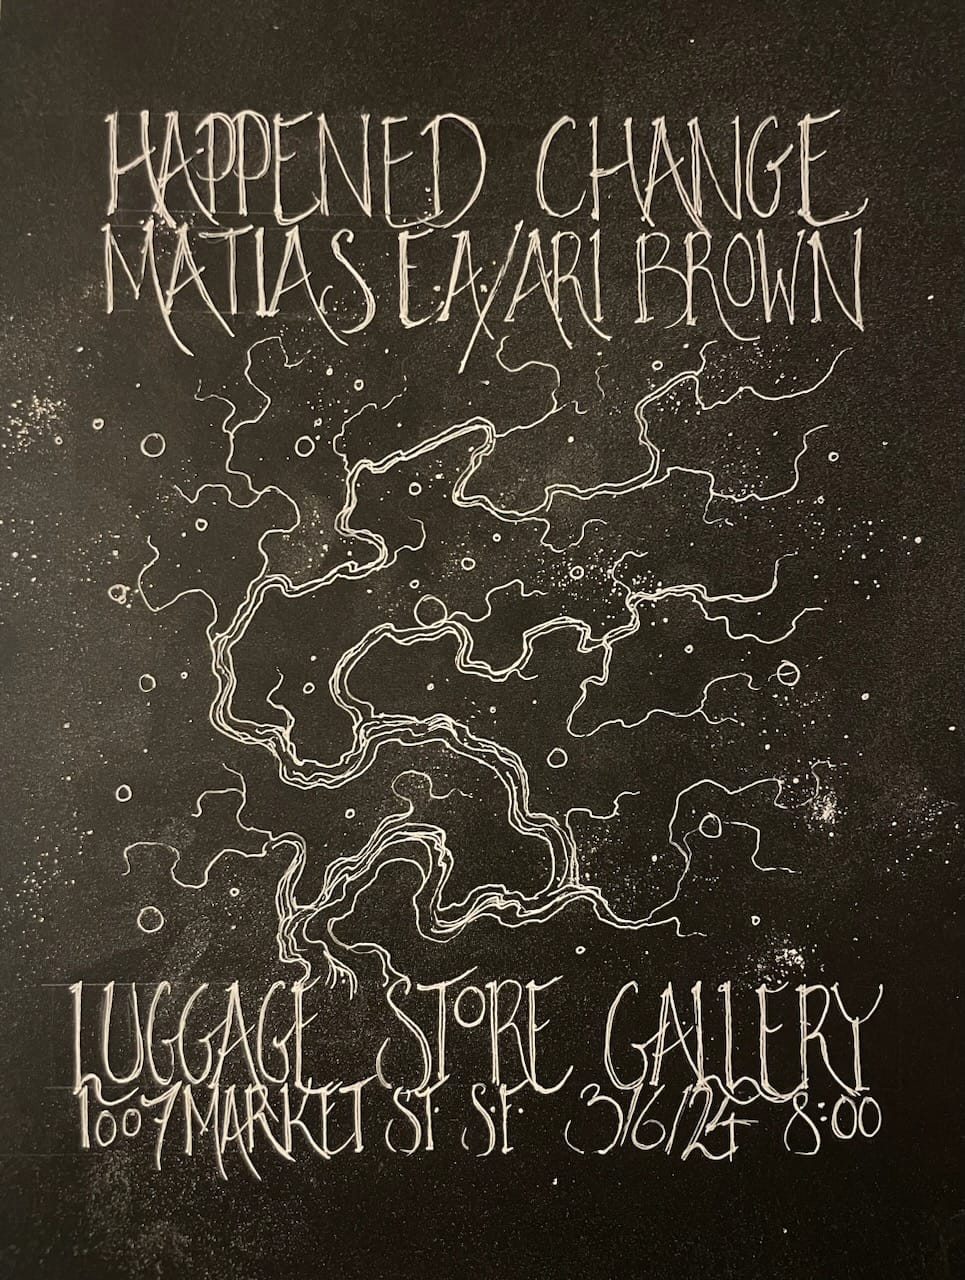 HAPPENED CHANGE
MATIAS E.A/ARI BROWN
LUGGAGE STORE GALLERY
1007 MARKET ST S.F 3/6/24 8:00